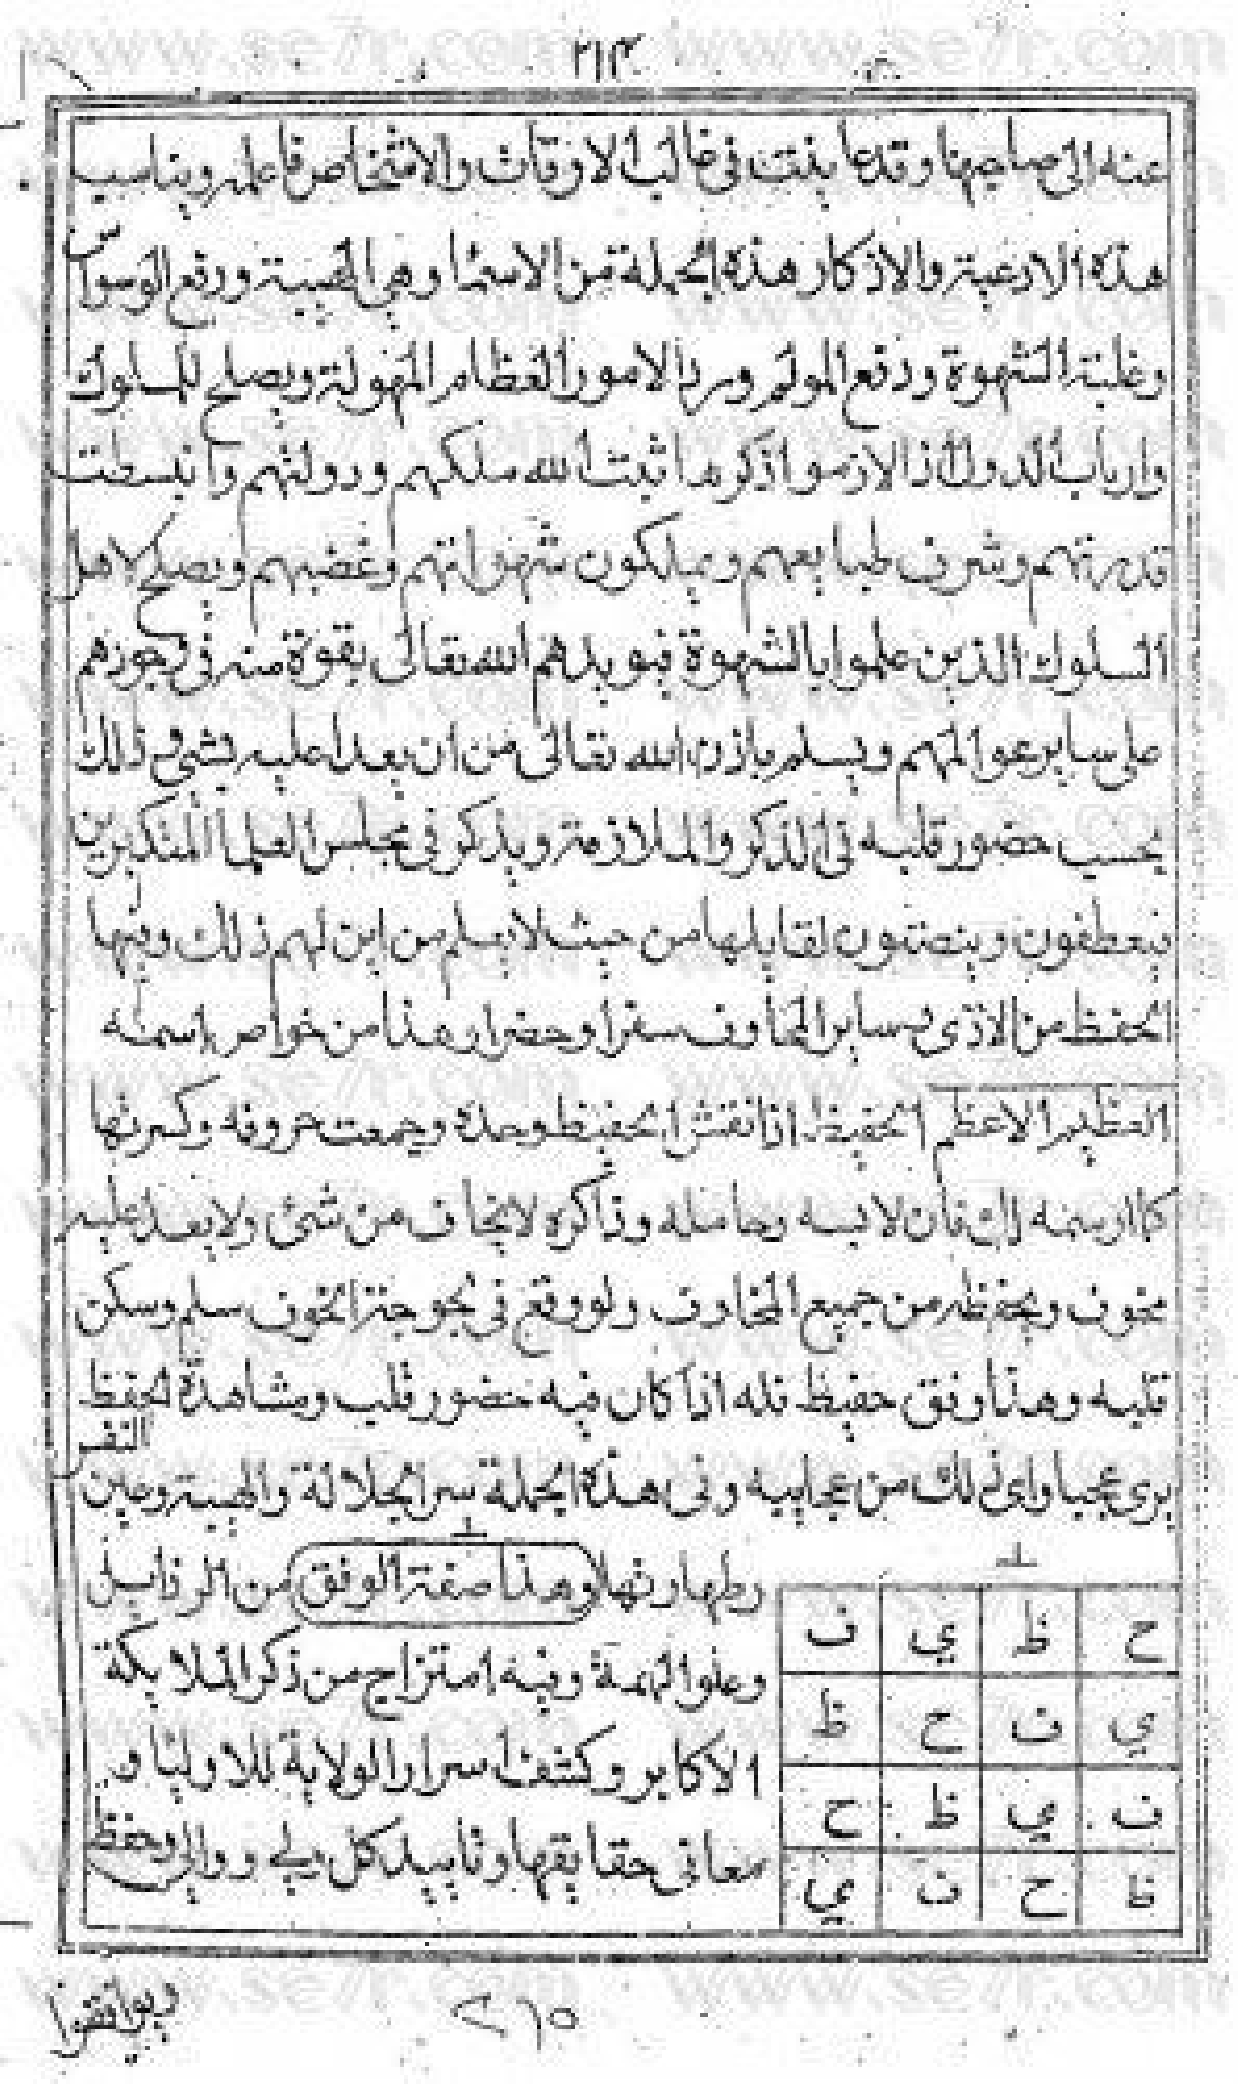 ٢١٣
عنه الى صاحبها وقد عاينت فى غالب الاوقات والاشخاص فاعلم ويناسب
هذه الادعية والاذكار هذه الجملة من الاسما وهى الهيبة ودفع الوسواس
وغلبة الشهوة ودفع المولم ورد الامور العظام المهولة ويصلح للملوك
وارباب الدول اذا لازموا ذكرها ثبت الله ملكهم ودولتهم وانبسطت
قدرتهم وشرف طبايعهم ويملكون شهواتهم وغضبهم ويصلح لاهل
السلوك الذين علموا بالشهوة فيويدهم الله تعالى بقوة منه فى
على ساير عوالمهم ويسلم باذن الله تعالى من ان يعدا عليه بشى وذلك
بحسب حضور قلبه فى الذكر والملازمة ويذكر فى مجلس العلما المتكبرين
فيعطفون وينصتون لقايلها من حيث لا يعلم من اين لهم ذلك وفيها
الحفظ من الاذى وساير المخاوف سفرا وحضرا وهذا من خواص اسمه
العظيم الاعظم الحفيظ اذا نقش الحفيظ وحده وجمعت حروفه وكسرتها
كما ارسمه لك فان لابسه وحامله وذاكره لا يخاف من شئ ولا يعدا عليه
مخوف ويحفظه من جميع المخاوف ولو وقع فى الخوف سلم وسكن
قلبه وهذا وفق حفيظ فله اذا كان فيه حضور قلب ومشاهدة لحفظ
النفس
يرى عجبا واى ذلك من عجايبه وفى هذه الجملة سر الجلالة والهيبة وعين
وطهارتها وهذا صفة الوفق من الرذايل
وعلو الهمة وفيه امتزاج من ذكر الملايكة
الاكابر وكشف اسرار الولاية للاوليا و
معانى حقايقها وتاييد كل ولى ووالى وحفظ
ح ظ ي ف
ي ف ح ظ
ف ي ظ ح
ظ ح ف ي
٢١٥
www.se7r.com www.se7r.com